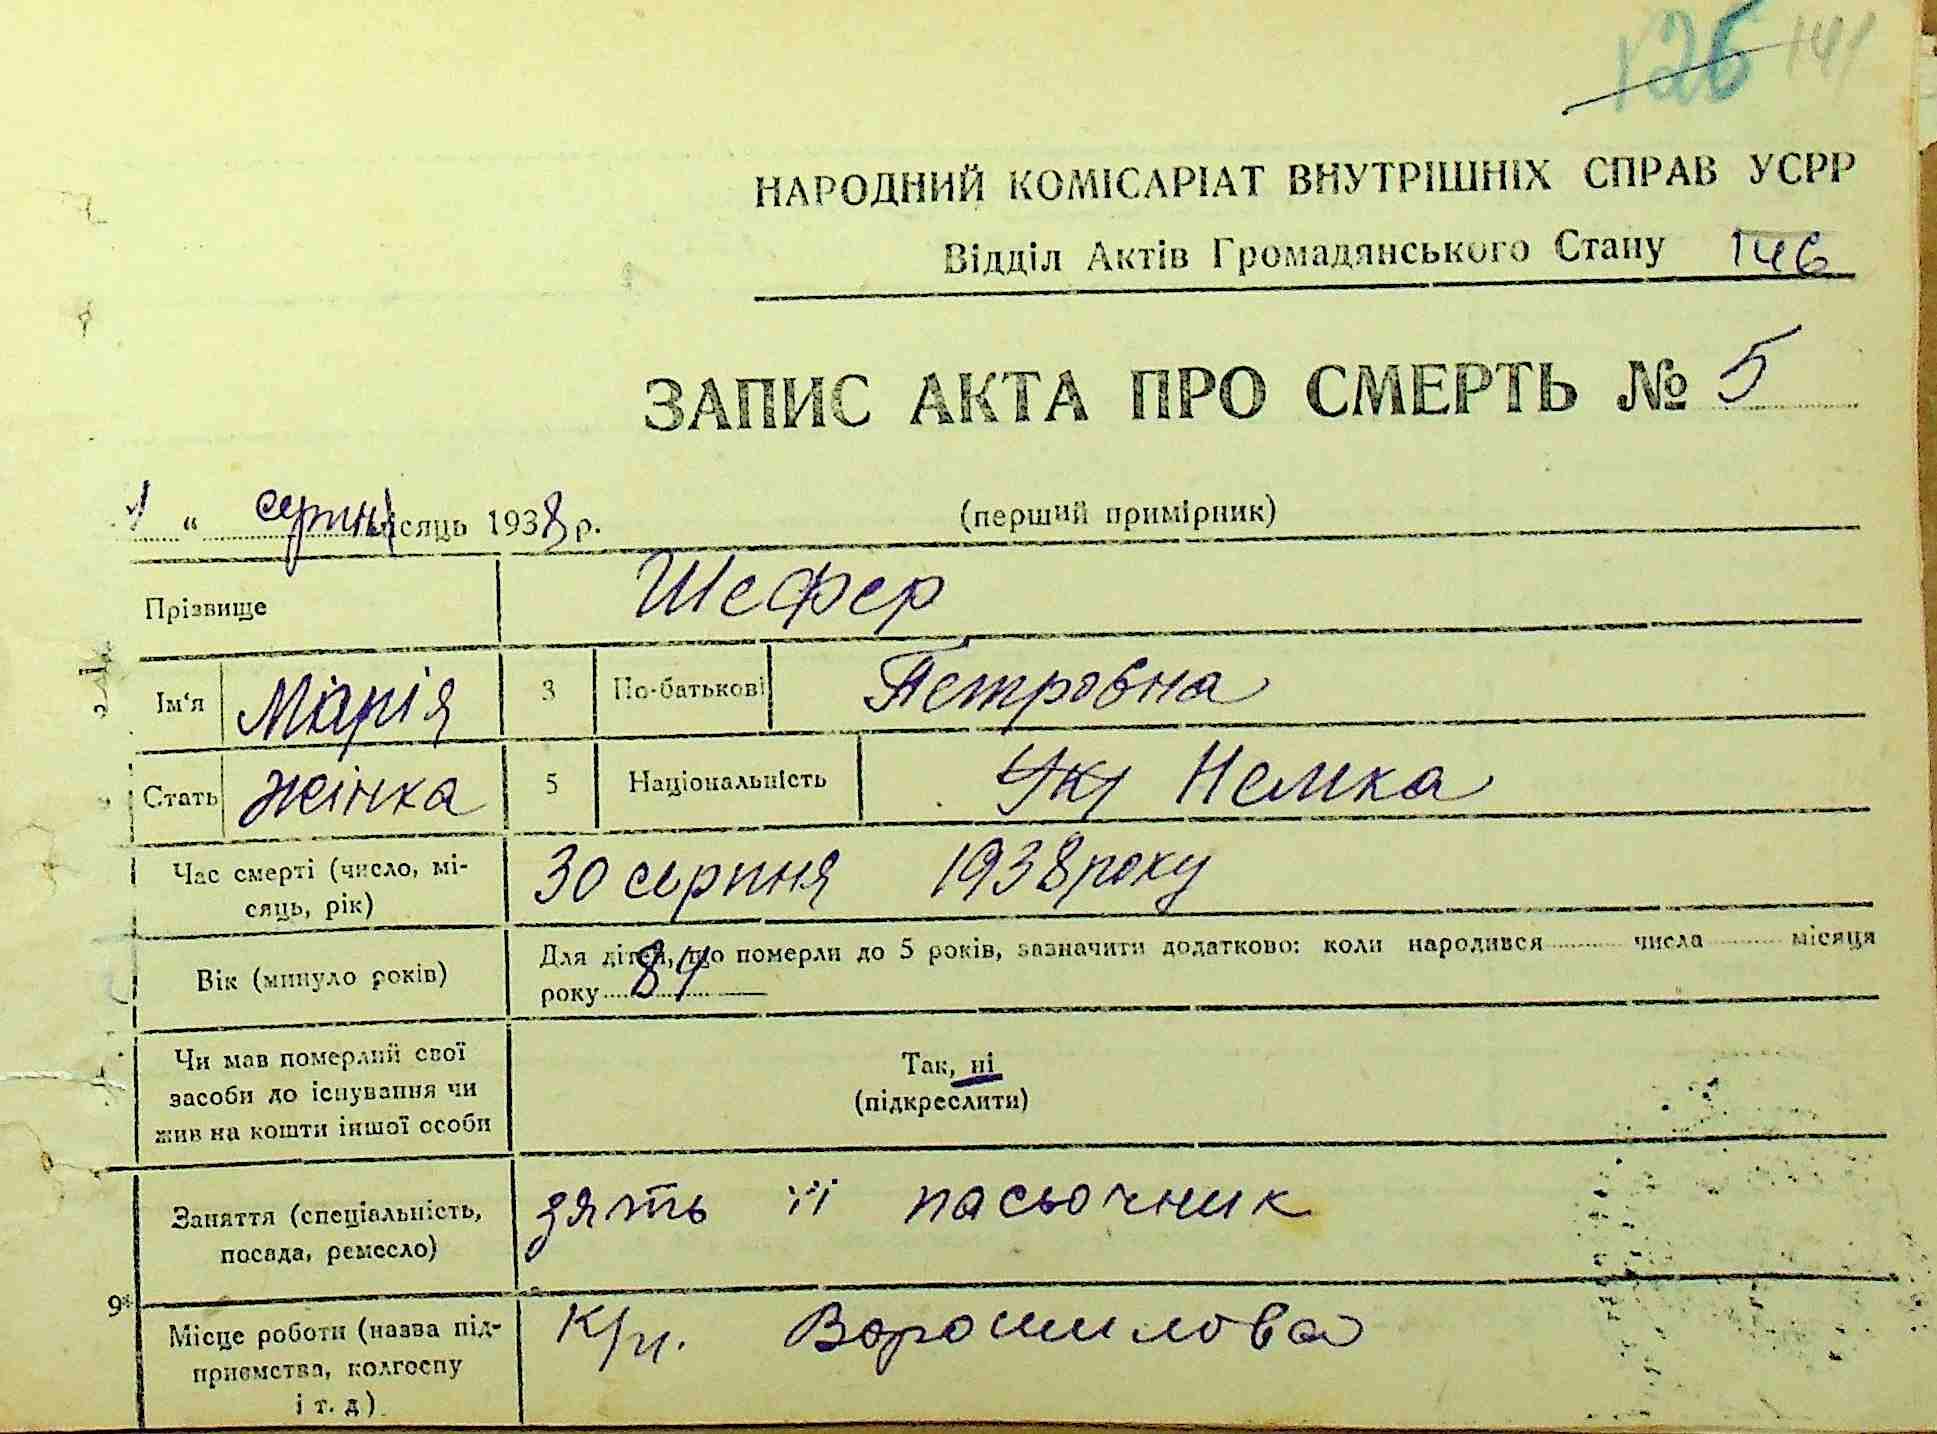 126 141
НАРОДНИЙ КОМІСАРІАТ ВНУТРІШНІХ СПРАВ УСРР
Відділ Актів Громадянського Стану 146
ЗАПИС АКТА ПРО СМЕРТЬ № 5
“ серпня місяць 1938 р. (перший примірник)
Прізвище Шефер
Ім‘я Марія 3 По-батькові Петровна
Стать Жінка 5 Національність Укр Немка
Час смерті (число, мі-
сяць, рік) 30 серпня 1938 року
Вік (минуло років) Для дітей, що померли до 5 років, зазначити додатково: коли народився числа місяця
року 84
Чи мав померлий свої
засоби до існування чи
жив на кошти іншої особи
Так, ні
(підкреслити)
Заняття (спеціальність,
посада, ремесло) зять її пасьочник
9*
Місце роботи (назва під-
приємства, колгоспу
і т. д.) Ворошилова